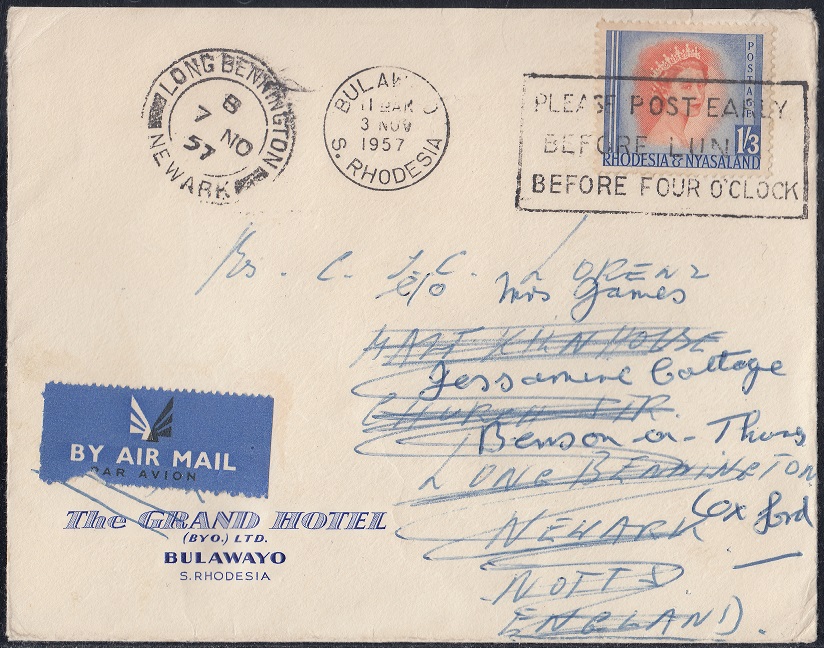 LONG BENNINGTON
8
7 NO
57
NEWARK
BULAW O
11 30 AM
3 NOV
1957
S. RHODESIA
PLEASE POST EARLY
BEFORE LUN
BEFORE FOUR O'CLOCK
POSTAGE
1/3
RHODESIA & NYASALAND
Mrs. C. J. C. LORENZ
c/o Mrs James
MALT KILN HOUSE
Jessamine Cottage
CHURCH STR.
Benson-on-Thames
LONG BENNINGTON
Oxford
NEWARK
NOTTS
ENGLAND.
BY AIR MAIL
PAR AVION
The GRAND HOTEL
(BYO.) LTD.
BULAWAYO
S. RHODESIA